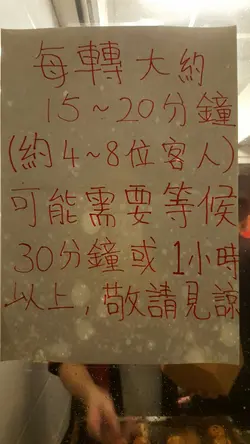 每轉大約
15~20分鐘
(約4~8位客人)
可能需要等候
30分鐘或1小時
以上,敬請見諒